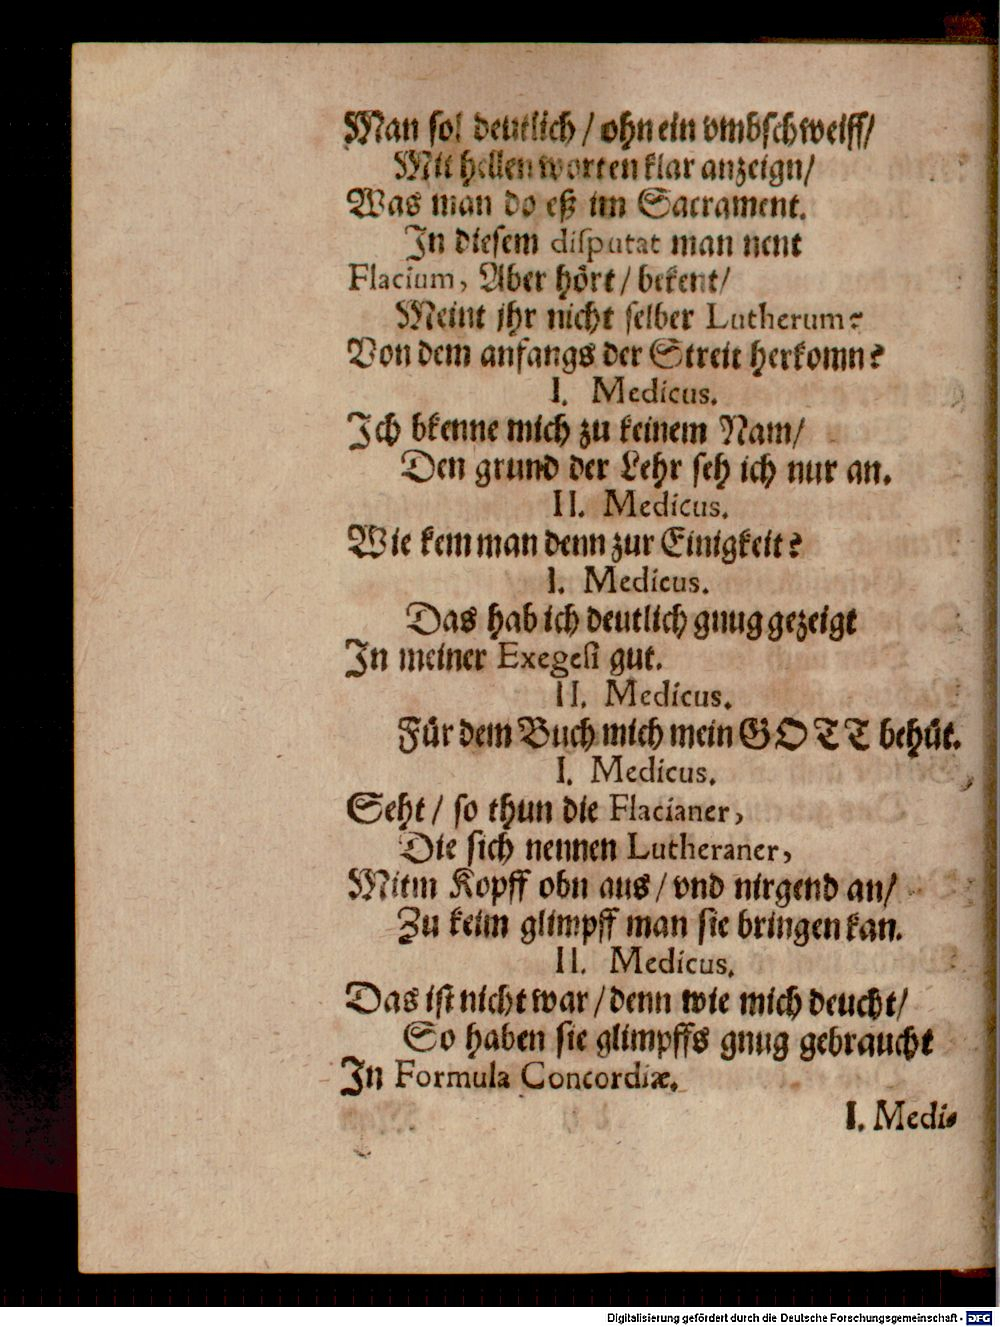 Man sol deutlich / ohn ein vmbschweiff/
Mit hellen worten klar anzeign/
Was man do eß im Sacrament.
In diesem disputat man nent
Flacium, Aber hört / bekent/
Meint jhr nicht selber Lutherum?
Von dem anfangs der Streit herkomn?
I. Medicus.
Ich bkenne mich zu keinem Nam/
Den grund der Lehr seh ich nur an.
II. Medicus.
Wie kem man denn zur Einigkeit?
I. Medicus.
Das hab ich deutlich gnug gezeigt
In meiner Exegesi gut.
II. Medicus.
Für dem Buch mich mein GOTT behüt.
I. Medicus.
Seht / so thun die Flacianer,
Die sich nennen Lutheraner,
Mitm Kopff obn aus / vnd nirgend an/
Zu keim glimpff man sie bringen kan.
II. Medicus.
Das ist nicht war / denn wie mich deucht/
So haben sie glimpffs gnug gebraucht
In Formula Concordiæ.
I. Medi-
Digitalisierung gefördert durch die Deutsche Forschungsgemeinschaft - DFG